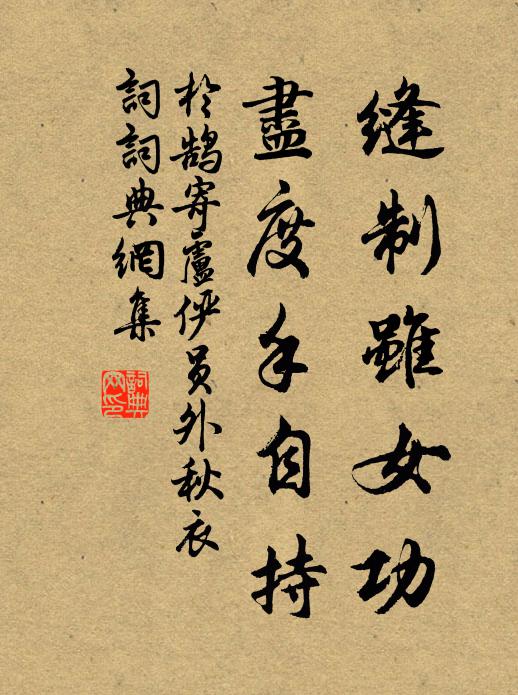 縫制雖女功
盡度手自持
於鵠寄盧儼員外秋衣
詞詞典網集
詞典網印